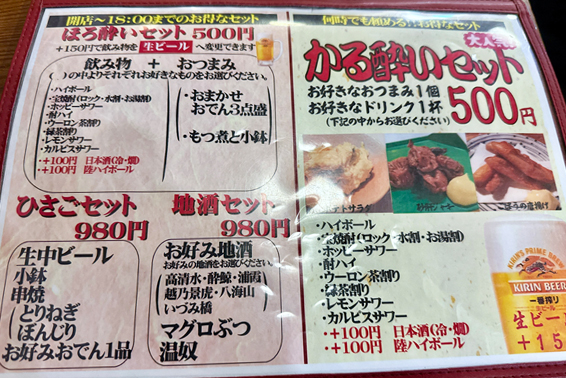 開店~18:00までのお得なセット
ほろ酔いセット 500円
+150円で飲み物を生ビールへ変更できます
飲み物 + おつまみ
( )の中よりそれぞれお好きなものをお選びください。
・ハイボール
・宝焼酎(ロック・水割・お湯割)
・ホッピーサワー
・酎ハイ
・ウーロン茶割り
・緑茶割り
・レモンサワー
・カルピスサワー
・+100円 日本酒(冷・燗)
・+100円 陸ハイボール
・おまかせ
おでん3点盛
・もつ煮と小鉢
ひさごセット
980円
生中ビール
小鉢
串焼
とりねぎ
ぼんじり
お好みおでん1品
地酒セット
980円
お好み地酒
お好みの地酒をお選びください。
高清水・酔鯨・浦霞
越乃景虎・八海山
いづみ橋
マグロぶつ
温奴
何時でも頼める!!お得なセット
かる酔いセット
お好きなおつまみ1個
お好きなドリンク1杯
(下記の中からお選びください)
500円
・ハイボール
・宝焼酎(ロック・水割・お湯割)
・ホッピーサワー
・酎ハイ
・ウーロン茶割り
・緑茶割り
・レモンサワー
・カルピスサワー
・+100円 日本酒(冷・燗)
・+100円 陸ハイボール
KIRIN'S PRIME BREW
KIRIN BEER
一番搾り
生ビール
生ビー
+15